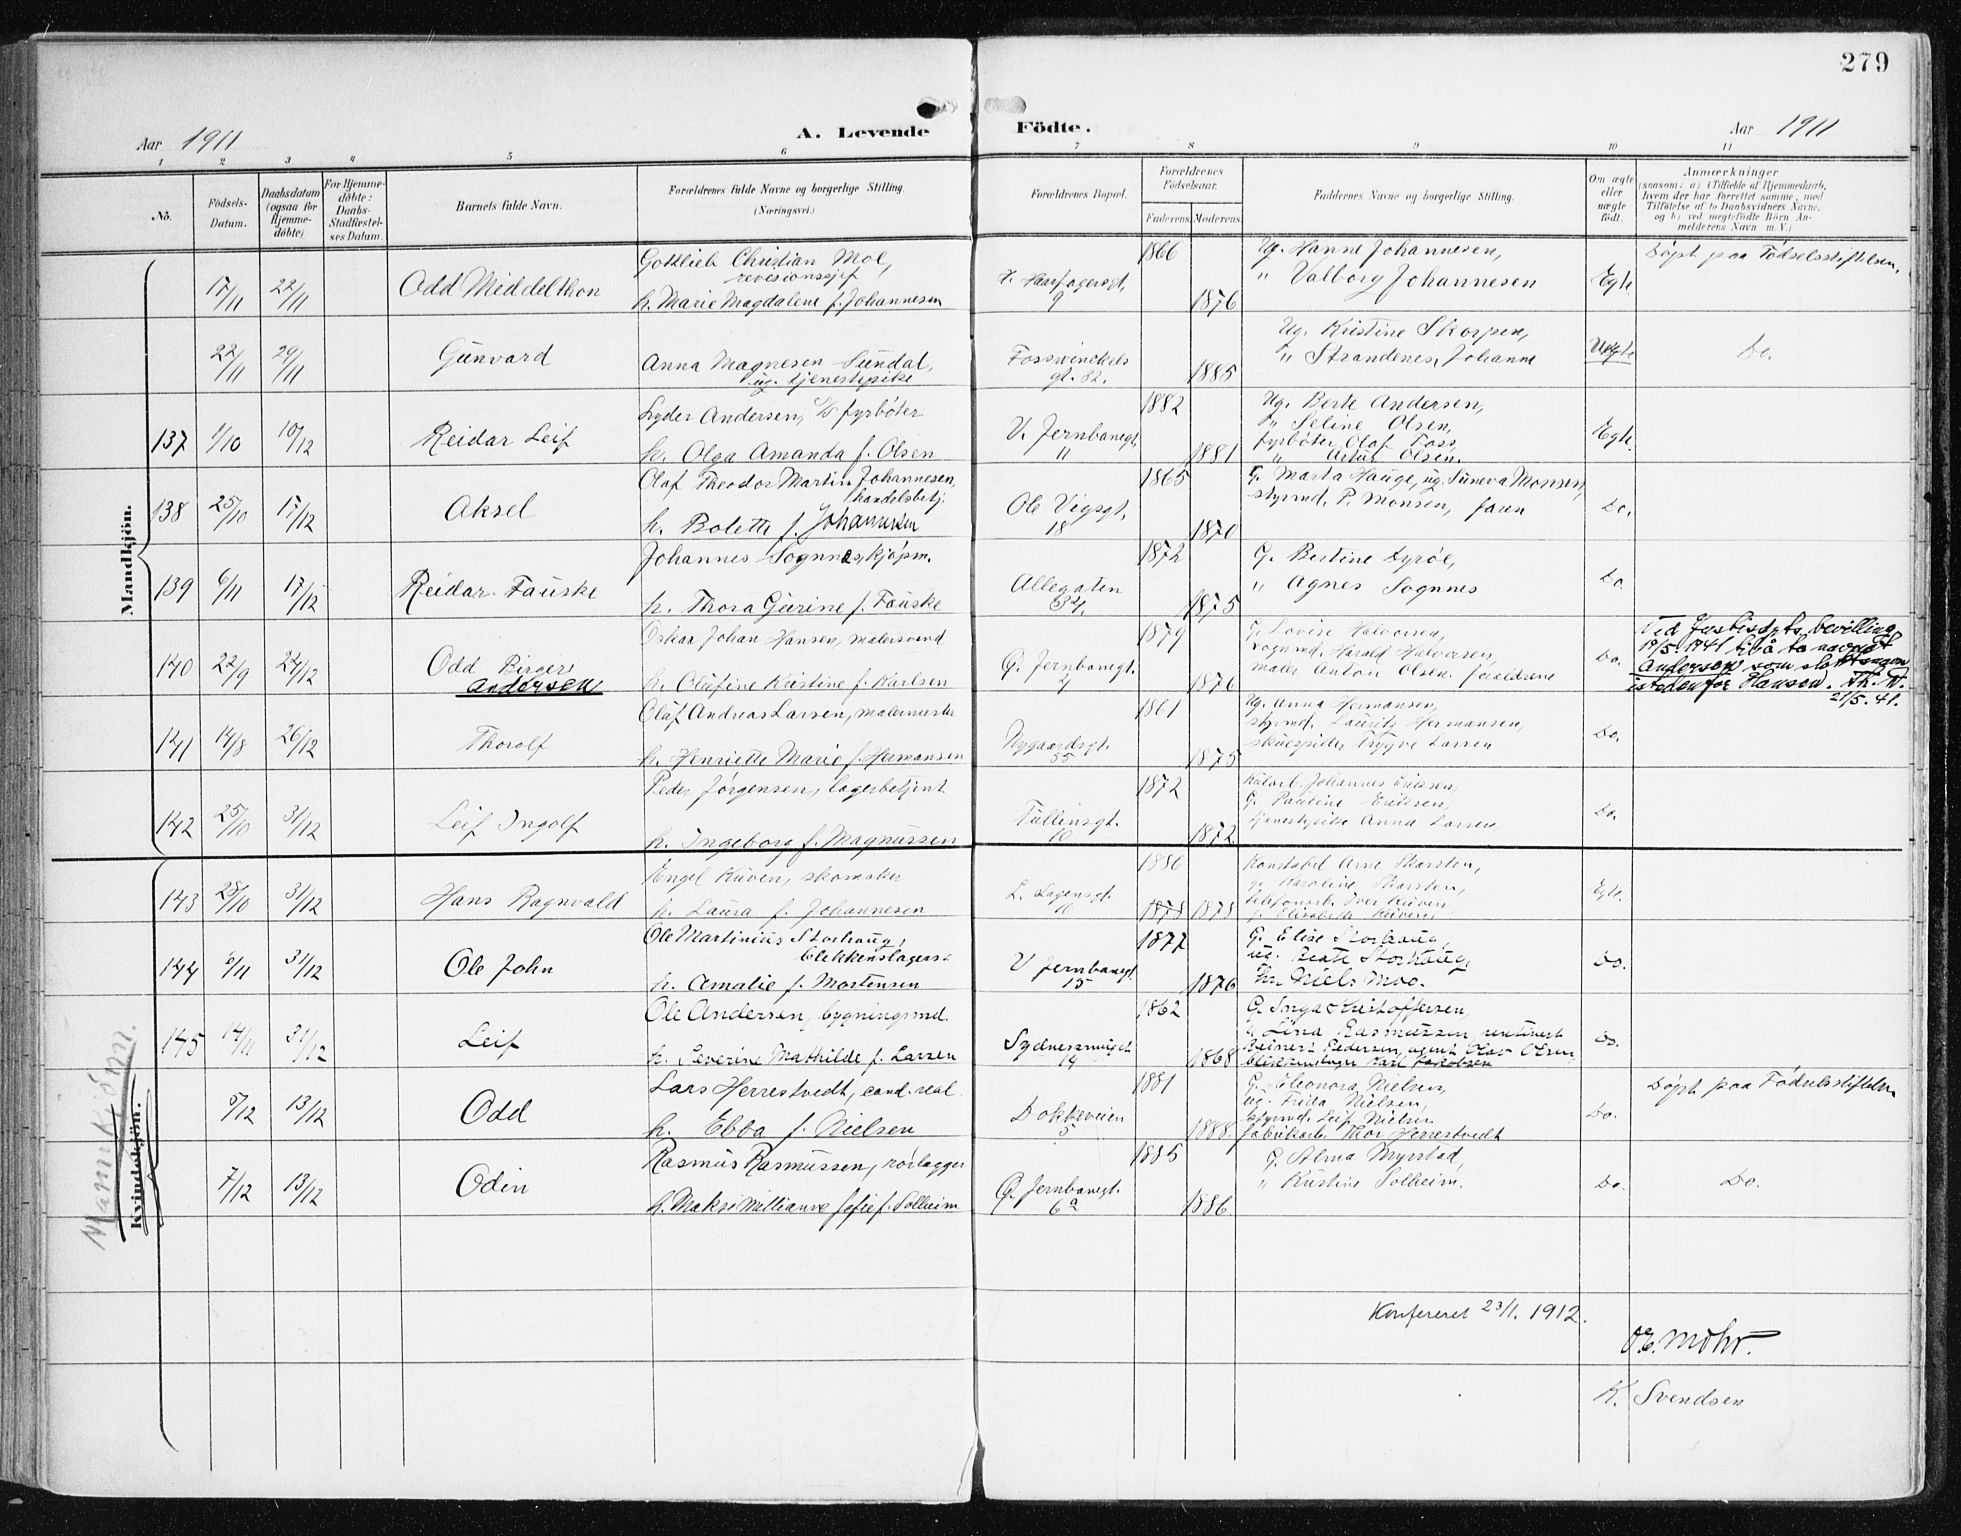 279
Aar 1911
A. Levende Födte.
Aar 1911
1 2 3 4 5 6 7 8 9 10 11
No.
Födsels-Datum.
Daabsdatum (ogsaa for Hjemme-döbte)
For Hjemme-döbte: Daabs-Stadfæstel-ses Datum.
Barnets fulde Navn.
Forældrenes fulde Navne og borgerlige Stilling (Næringsvei.)
Forældrenes Bopæl.
Forældrenes Födselsaar.
Faderens Moderens
Faddernes Navne og borgerlige Stilling.
Om ægte eller uægte födt.
Anmærkninger
(saasom: a) i Tilfælde af Hjemmedaab, hvem der har forrettet samme, med Tilföielse af to Daabsvidners Navne, og b) ved uegtefödte Börn An-melderens Navn m. V.)
Mandkjön.
17/11 22/11 Odd Middelthon
Gottlieb Christian Moe, revisionschef
h. Marie Magdalene f. Johannesen
H. Haarfagersgt. 9
1866 1876
Ug. Hanne Johannesen,
" Valborg Johannesen
Egte
Døpt paa Fødselsstiftelsen.
22/11 29/11 Gunvard
Anna Magnesen Sundal, ug. tjenestepike
Fosswinckels gt. 82.
1885
Ug. Kristine Skorpen,
" Strandenes, Johanne
Uegte
Do.
137 1/10 10/12 Reidar Leif
Lyder Andersen, fyrbøter
h. Olga Amanda f. Olsen
V. Jernbanegt. 11
1882 1881
Ug. Berte Andersen,
" Seline Olsen,
fyrbøter Olaf Foss,
" Artur Olsen.
Egte
138 25/10 17/12 Aksel
Olaf Theodor Martin Johannesen, handelsbetj.
h. Bolette f. Johannesen
Ole Vigsgt. 18
1865 1870
G. Marta Hauge, ug. Suneva Monsen,
styrmd. P. Monsen, faren
Do.
139 6/11 17/12 Reidar Fauske
Johannes Sognnes, kjøpm.
h. Thora Gurine f. Fauske
Allegaten 34.
1872 1875
G. Bertine Dyrøl,
" Agnes Sognnes
Do.
140 22/9 24/12 Odd Birger Andersen
Oskar Johan Hansen, malersvend
h. Olufine Kristine f. Karlsen
G. Jernbanegt.
1879 1876
G. Lovise Halvorsen,
vognmd. Harald Halvorsen,
maler Anton Olsen. foreldrene
Do.
Ved Justisdpts bevilling
19/5.1941 til å ta navnet
Andersen som slektsnavn
istedenfor Hansen. Th. W.
21/5.41.
141 14/8 26/12 Thorolf
Oluf Andreas Larsen, malermester
h. Henriette Marie f. Hermansen
Nygaardsgt. 55
1861 1875
Ug. Anna Hermansen,
styrmd. Lauritz Hermansen,
skuespiller Trygve Larsen
Do.
142 25/10 31/12 Leif Ingolf
Peder Jørgensen, lagerbetjent
h. Ingeborg f. Magnussen
Tullinsgt. 10
1872 1872
Kularb. Johannes Eriksen,
G. Pauline Eriksen,
tjenestepike Anna Larsen,
Do.
Mannkjönn.
Kvindekjön.
143 28/10 31/12 Hans Ragnvald
Engel Kuven, skomaker
h. Laura f. Johannesen
L. Sagensgt. 10
1880 1878 1878
Konstabel Arne Skarsten,
g. Karoline Skarsten,
telefonarb. Iver Kuven
g. Elisabeth Kuven
Egte.
144 6/11 31/12 Ole John
Ole Martinius Storhaug, blekkenslagers:
h. Amalie f. Mortensen
V Jernbanegt. 15
1877 1876
G. Elise Storhaug,
ug. Beate Storhaug,
hr. Niels Moo.
Do.
145 14/11 31/12 Leif
Ole Andersen, bygningsmd.
h. Severine Mathilde f. Larsen
Sydnessmuget 14
1862 1868
G. Inga Kristoffersen,
g. Lina Rasmussen, rentenist
Reinert Pedersen, agent Olav Olsen,
blikkenslager Karl Jakobsen
Do.
5/12 13/12 Odd
Lars Herrestvedt, cand. real.
h. Ebba f. Nielsen
Dokkeveien 5
1881 1888.
G. Eleonora Nielsen,
ug. Frida Nielsen,
styrmd. Leif Nielsen
fabrikarb. Thor Herrestvedt
Do.
Døpt paa Fødselsstiftelsen
7/12 13/12 Odin
Rasmus Rasmussen, rørlægger
h. Maksi Millianne Sofie f. Solheim
G. Jernbanegt. 6a
1885 1886
G. Alma Myrstad,
" Kristine Solheim.
Do.
Do.
Konfereret 23/1. 1912.
O.E. Mohr.
K. Svendsen